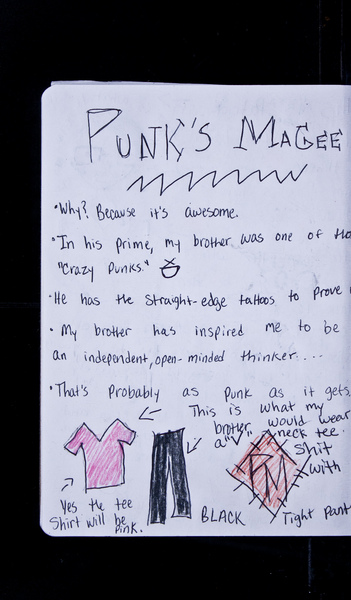 PUNK'S MAGEE
•Why? Because it's awesome.
•In his prime, my brother was one of tho
"Crazy Punks."
•He has the Straight-edge tattoos to prove i
•My brother has inspired me to be
an independent, open-minded thinker....
•That's probably as Punk as it gets.
This is what my
brother would wear
a "V" neck tee.
Shit
with
Tight Pant
Yes the tee
Shirt will be
Pink.
BLACK